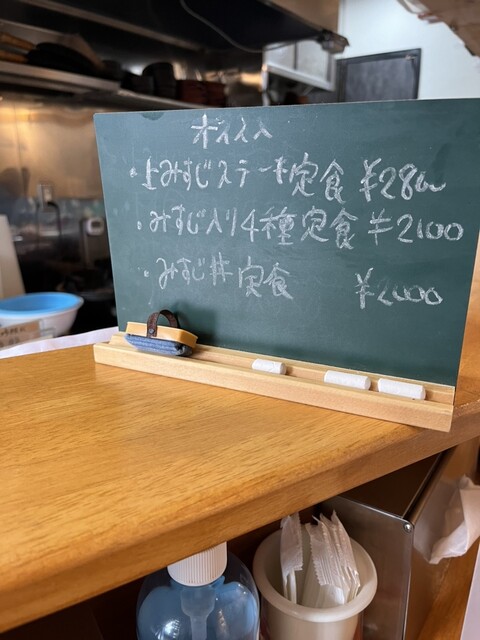 オススメ
・上みすじステーキ定食 ¥2800
・みすじ入り4種定食 ¥2100
・みすじ丼定食 ¥2000